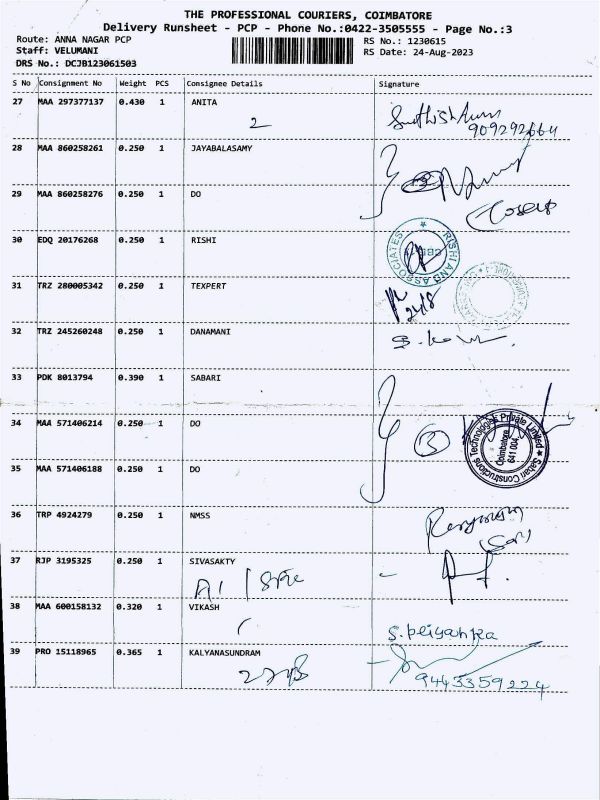 THE PROFESSIONAL COURIERS, COIMBATORE
Delivery Runsheet - PCP - Phone No.:0422-3505555 - Page No.:3
Route: ANNA NAGAR PCP
RS No.: 1230615
Staff: VELUMANI
RS Date: 24-Aug-2023
DRS No.: DCJB123061503
S No Consignment No Weight PCS Consignee Details Signature
27 MAA 297377137 0.430 1 ANITA
2
28 MAA 860258261 0.250 1 JAYABALASAMY
29 MAA 860258276 0.250 1 DO
30 EDQ 20176268 0.250 1 RISHI
RISHI AND ASSOCIATES
31 TRZ 280005342 0.250 1 TEXPERT
32 TRZ 245260248 0.250 1 DANAMANI
33 PDK 8013794 0.390 1 SABARI
34 MAA 571406214 0.250 1 DO
3
Sabari Constructions Technologies Private Limited
Coimbatore
641 004
35 MAA 571406188 0.250 1 DO
36 TRP 4924279 0.250 1 NMSS
37 RJP 3195325 0.250 1 SIVASAKTY
38 MAA 600158132 0.320 1 VIKASH
S. Priyanka
39 PRO 15118965 0.365 1 KALYANASUNDRAM
9443359224